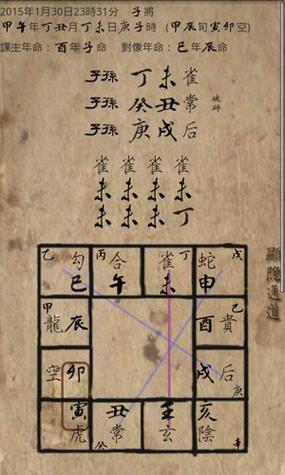 2015年1月30日23時31分　子將
甲午年丁丑月丁未日庚子時 (甲辰旬寅卯空)
課主年命：酉年子命　對像年命：巳年辰命
子孫 丁未 雀
子孫 癸丑 常 破碎
子孫 庚戌 后
雀 雀 雀 雀
未 未 未 未
未 未 未 丁
顯隐通道
乙 勾 丙 合 雀 丁 蛇 戊
巳 午 未 申
甲 己
龍 辰 酉 貴
空 卯 戌 后
庚
寅 丑 壬 亥 陰
虎 常 玄
癸 辛